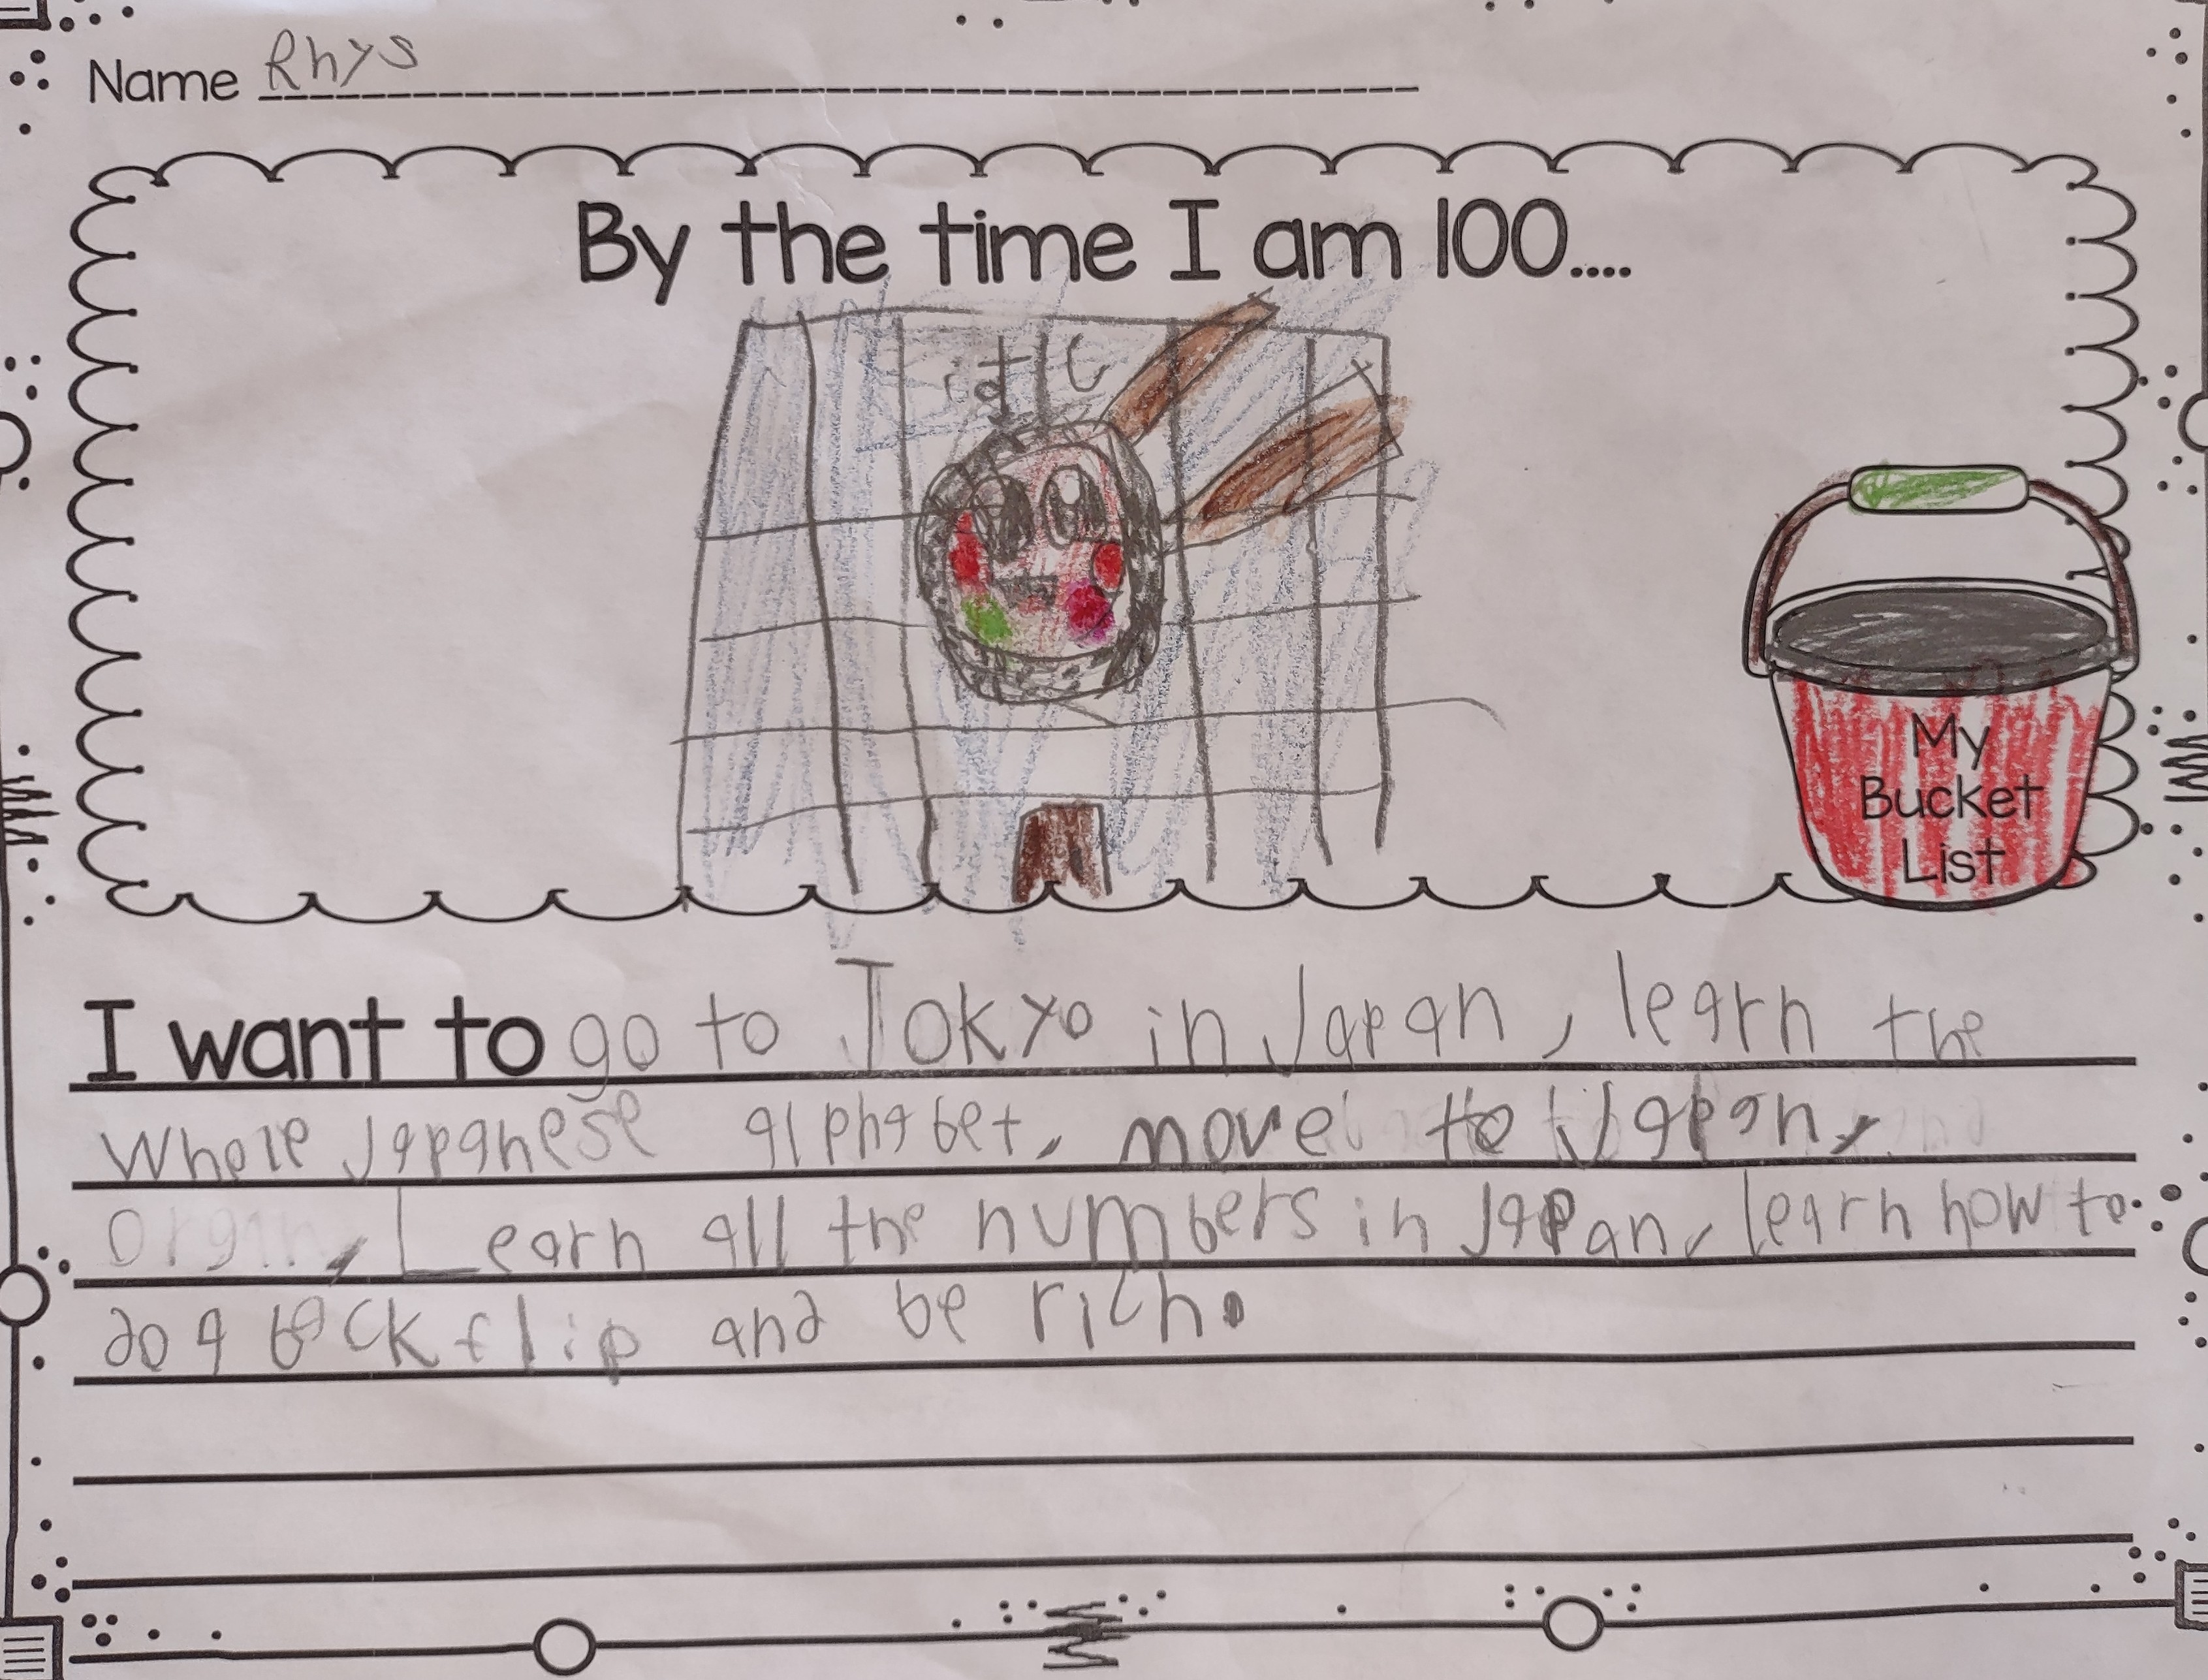 Name Rhys
By the time I am 100....
My
Bucket
List
I want to go to Tokyo in Japan, learn the
whole Japanese alphabet, move to Japan,
Learn all the numbers in Japan, learn how to
do a back flip and be rich.